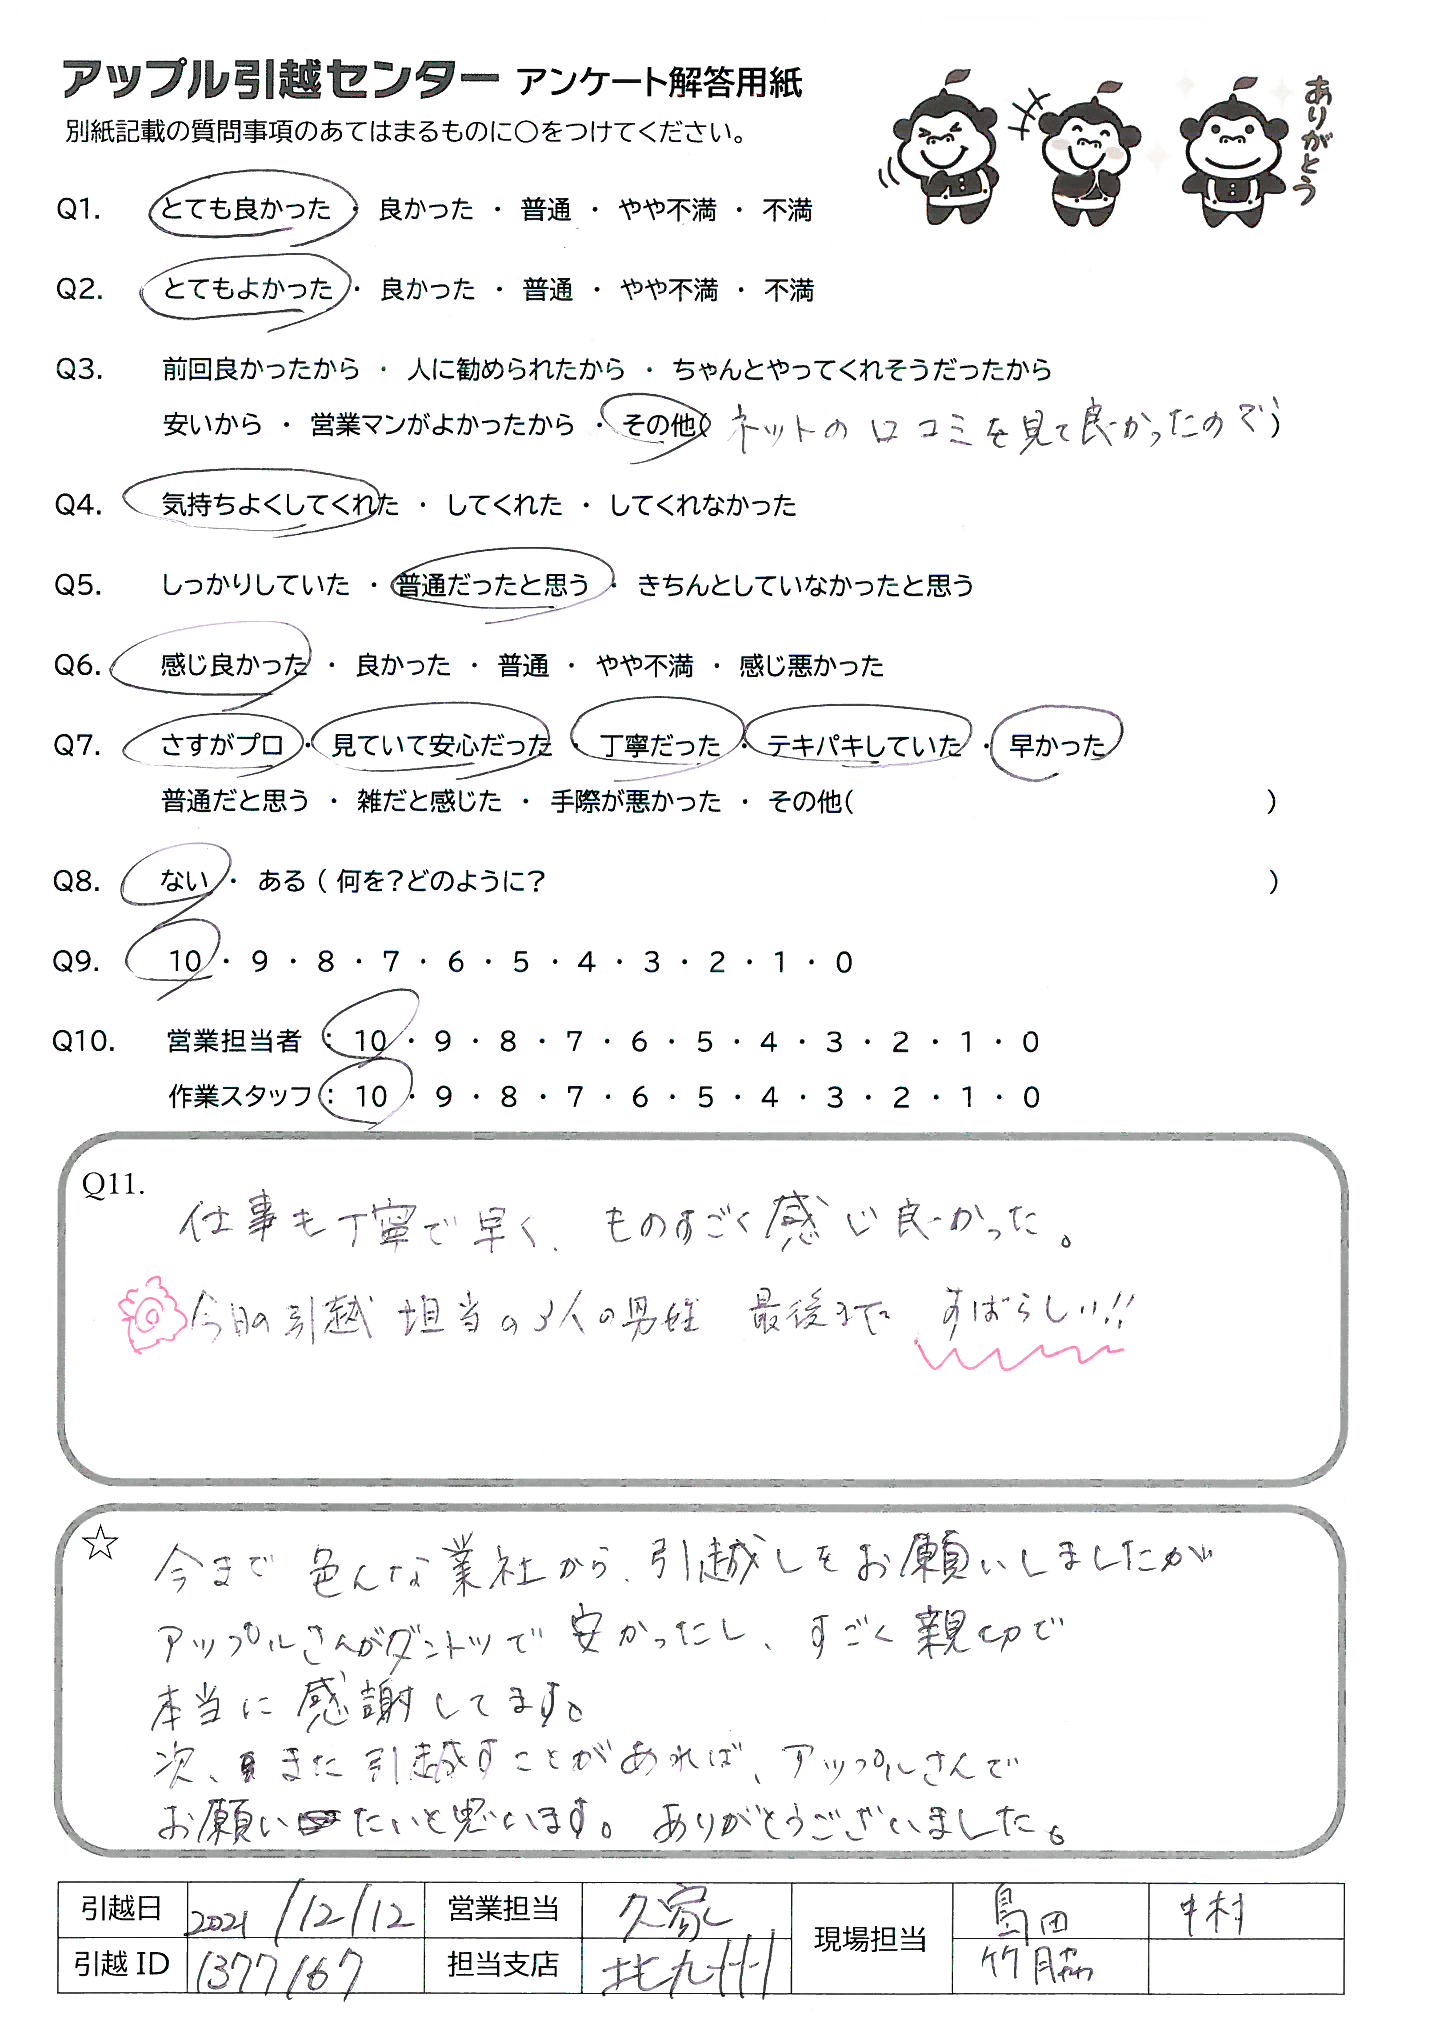 アップル引越センター アンケート解答用紙
別紙記載の質問事項のあてはまるものに〇をつけてください。
ありがとう
Q1. とても良かった ・ 良かった ・ 普通 ・ やや不満 ・ 不満
Q2. とてもよかった ・ 良かった ・ 普通 ・ やや不満 ・ 不満
Q3. 前回良かったから ・ 人に勧められたから ・ ちゃんとやってくれそうだったから
安いから ・ 営業マンがよかったから ・ その他( ネットの口コミを見て良かったので )
Q4. 気持ちよくしてくれた ・ してくれた ・ してくれなかった
Q5. しっかりしていた ・ 普通だったと思う ・ きちんとしていなかったと思う
Q6. 感じ良かった ・ 良かった ・ 普通 ・ やや不満 ・ 感じ悪かった
Q7. さすがプロ ・ 見ていて安心だった ・ 丁寧だった ・ テキパキしていた ・ 早かった
普通だと思う ・ 雑だと感じた ・ 手際が悪かった ・ その他( )
Q8. ない ・ ある ( 何を?どのように? )
Q9. 10 ・ 9 ・ 8 ・ 7 ・ 6 ・ 5 ・ 4 ・ 3 ・ 2 ・ 1 ・ 0
Q10. 営業担当者 : 10 ・ 9 ・ 8 ・ 7 ・ 6 ・ 5 ・ 4 ・ 3 ・ 2 ・ 1 ・ 0
作業スタッフ : 10 ・ 9 ・ 8 ・ 7 ・ 6 ・ 5 ・ 4 ・ 3 ・ 2 ・ 1 ・ 0
Q11.
仕事も丁寧で早く、ものすごく感じ良かった。
今日の引越 担当の3人の男性 最後まで すばらしい!!
☆ 今まで 色んな業社から、引越しをお願いしましたが
アップルさんがダントツで 安かったし、すごく親切で
本当に感謝してます。
次、また引越すことがあれば、アップルさんで
お願いしたいと思います。ありがとうございました。
引越日 2021/12/12 営業担当 久家 現場担当 島田 中村
引越ID 1377167 担当支店 北九州 竹脇